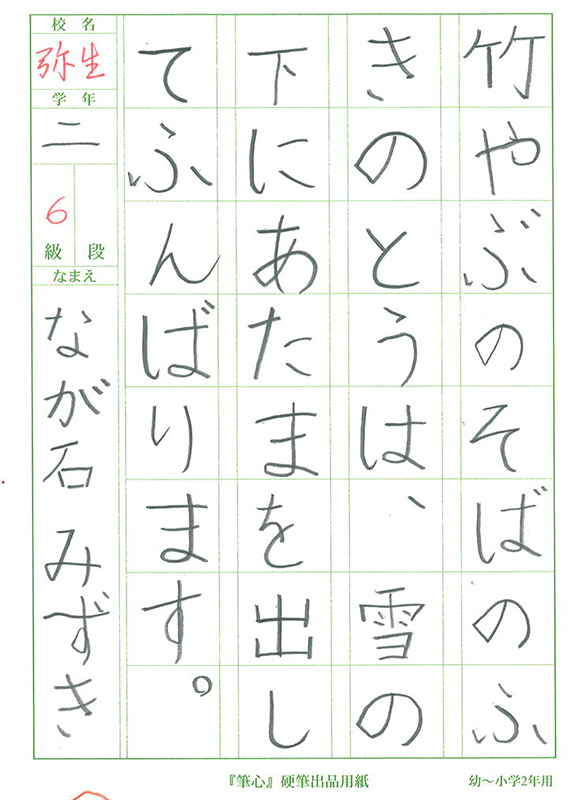 竹やぶのそばのふ
きのとうは、雪の
下にあたまを出し
てふんばります。
校名
弥生
学年
二
6
級 段
なまえ
なが石みずき
『筆心』硬筆出品用紙
幼～小学2年用